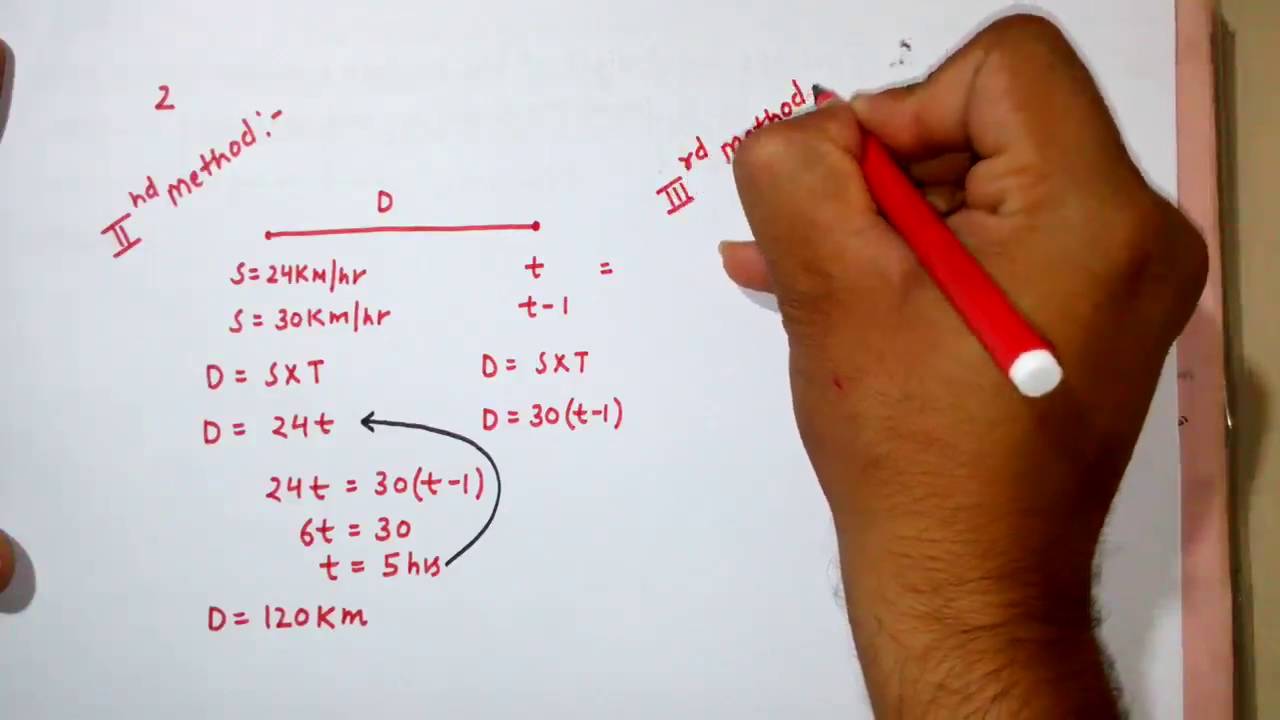 2
IInd method:-
D
S=24Km/hr t =
S=30Km/hr t-1
D = SXT
D = 24t
D = SXT
D = 30(t-1)
24t = 30(t-1)
6t = 30
t = 5hrs
D = 120Km
IIIrd method